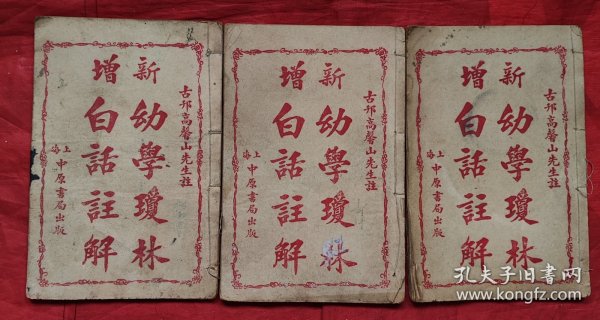 古邗高馨山先生註
新增
幼學瓊林
白話註解
上海中原書局出版
古邗高馨山先生註
新增
幼學瓊林
白話註解
上海中原書局出版
古邗高馨山先生註
新增
幼學瓊林
白話註解
上海中原書局出版
孔夫子旧书网
www.kongfz.com